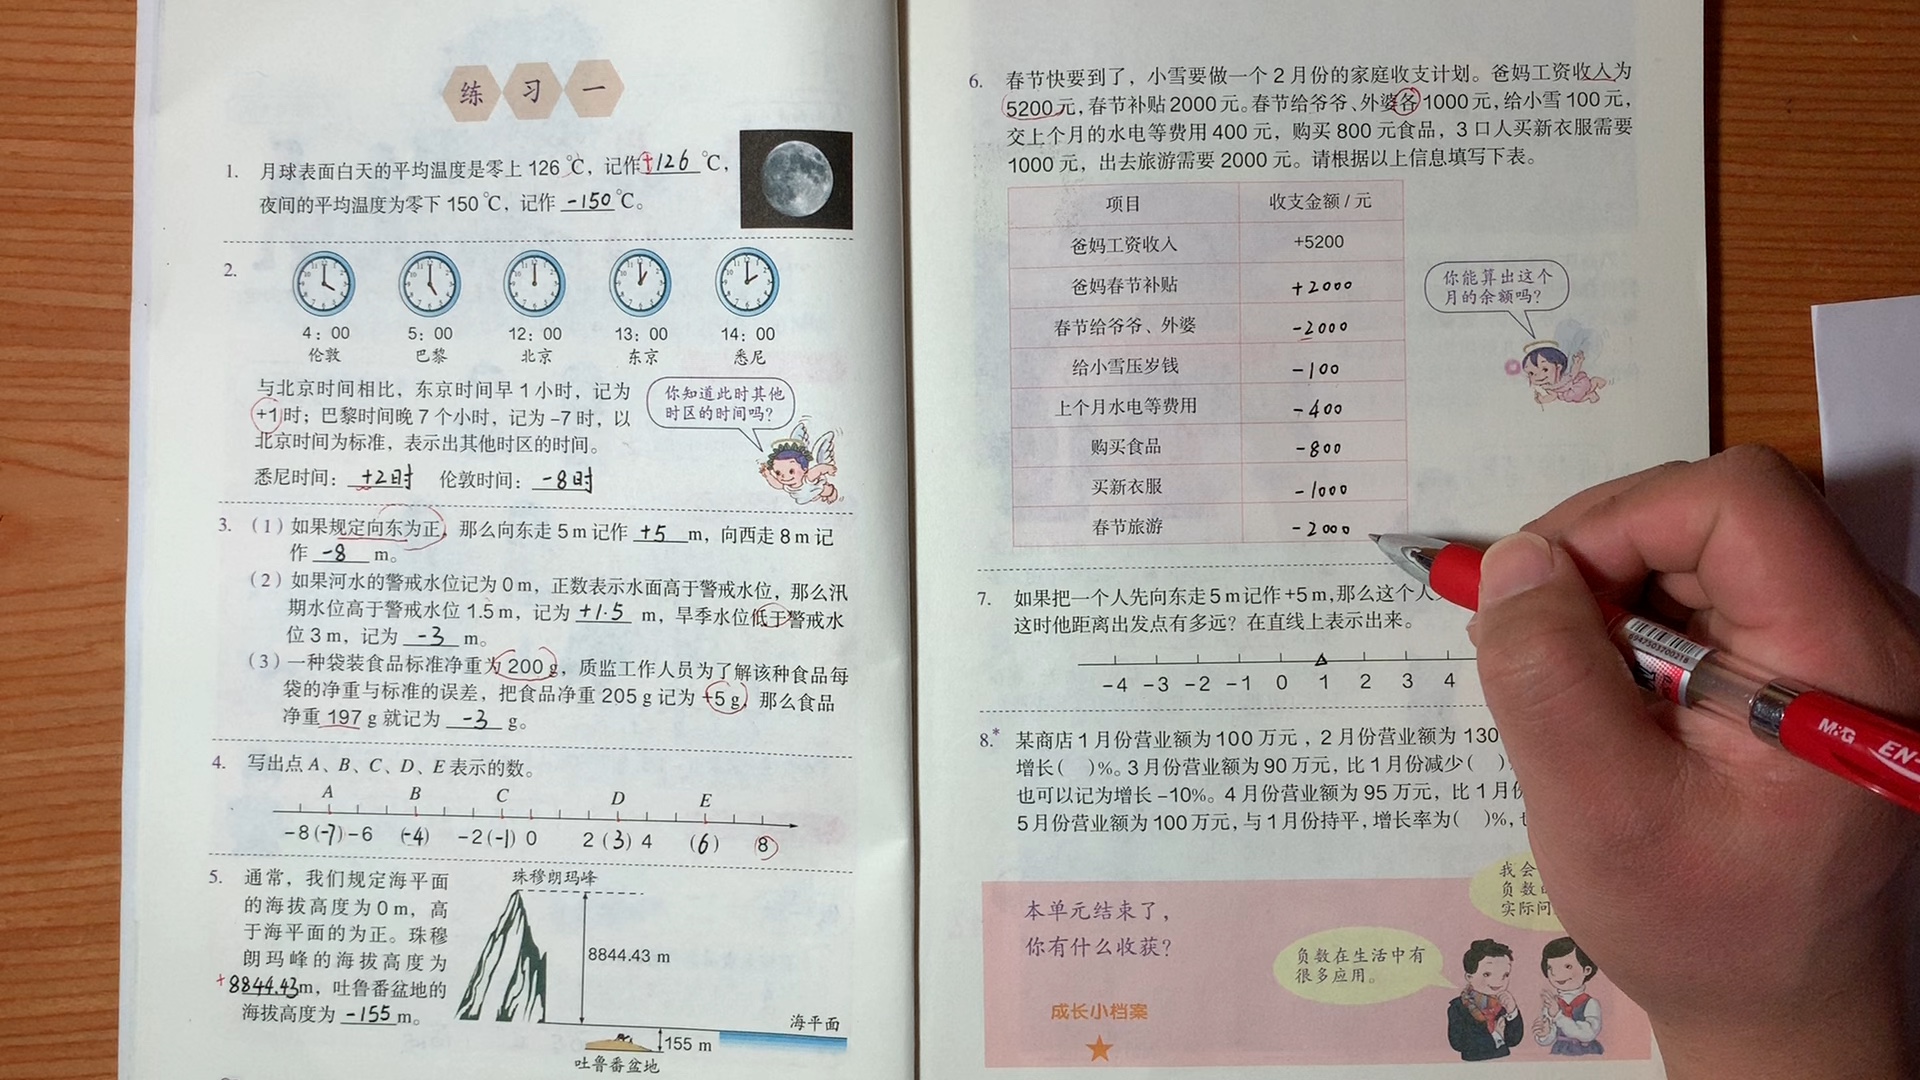 练习一
1. 月球表面白天的平均温度是零上 126 ℃，记作 +126 ℃，
夜间的平均温度为零下 150 ℃，记作 -150 ℃。
2.
4：00 5：00 12：00 13：00 14：00
伦敦 巴黎 北京 东京 悉尼
与北京时间相比，东京时间早 1 小时，记为
+1时；巴黎时间晚 7 个小时，记为 -7 时，以
北京时间为标准，表示出其他时区的时间。
悉尼时间：+2时 伦敦时间：-8时
你知道此时其他
时区的时间吗？
3.（1）如果规定向东为正，那么向东走 5 m 记作 +5 m，向西走 8 m 记
作 -8 m。
（2）如果河水的警戒水位记为 0 m，正数表示水面高于警戒水位，那么汛
期水位高于警戒水位 1.5 m，记为 +1.5 m，旱季水位低于警戒水
位 3 m，记为 -3 m。
（3）一种袋装食品标准净重为 200 g，质监工作人员为了解该种食品每
袋的净重与标准的误差，把食品净重 205 g 记为 +5 g，那么食品
净重 197 g 就记为 -3 g。
4. 写出点 A、B、C、D、E 表示的数。
A B C D E
-8 (-7) -6 (-4) -2 (-1) 0 2 (3) 4 (6) 8
5. 通常，我们规定海平面
的海拔高度为 0 m，高
于海平面的为正。珠穆
朗玛峰的海拔高度为
+8844.43 m，吐鲁番盆地的
海拔高度为 -155 m。
珠穆朗玛峰
8844.43 m
海平面
155 m
吐鲁番盆地
6. 春节快要到了，小雪要做一个 2 月份的家庭收支计划。爸妈工资收入为
5200 元，春节补贴 2000 元。春节给爷爷、外婆各 1000 元，给小雪 100 元，
交上个月的水电等费用 400 元，购买 800 元食品，3 口人买新衣服需要
1000 元，出去旅游需要 2000 元。请根据以上信息填写下表。
项目 收支金额 / 元
爸妈工资收入 +5200
爸妈春节补贴 +2000
春节给爷爷、外婆 -2000
给小雪压岁钱 -100
上个月水电等费用 -400
购买食品 -800
买新衣服 -1000
春节旅游 -2000
你能算出这个
月的余额吗？
7. 如果把一个人先向东走 5 m 记作 +5 m，那么这个人
这时他距离出发点有多远？在直线上表示出来。
-4 -3 -2 -1 0 1 2 3 4
8.* 某商店 1 月份营业额为 100 万元，2 月份营业额为 130
增长（ ）%。3 月份营业额为 90 万元，比 1 月份减少（ ）
也可以记为增长 -10%。4 月份营业额为 95 万元，比 1 月份
5 月份营业额为 100 万元，与 1 月份持平，增长率为（ ）%，
本单元结束了，
你有什么收获？
成长小档案
负数在生活中有
很多应用。
我会
负数
实际问
M&G EN-